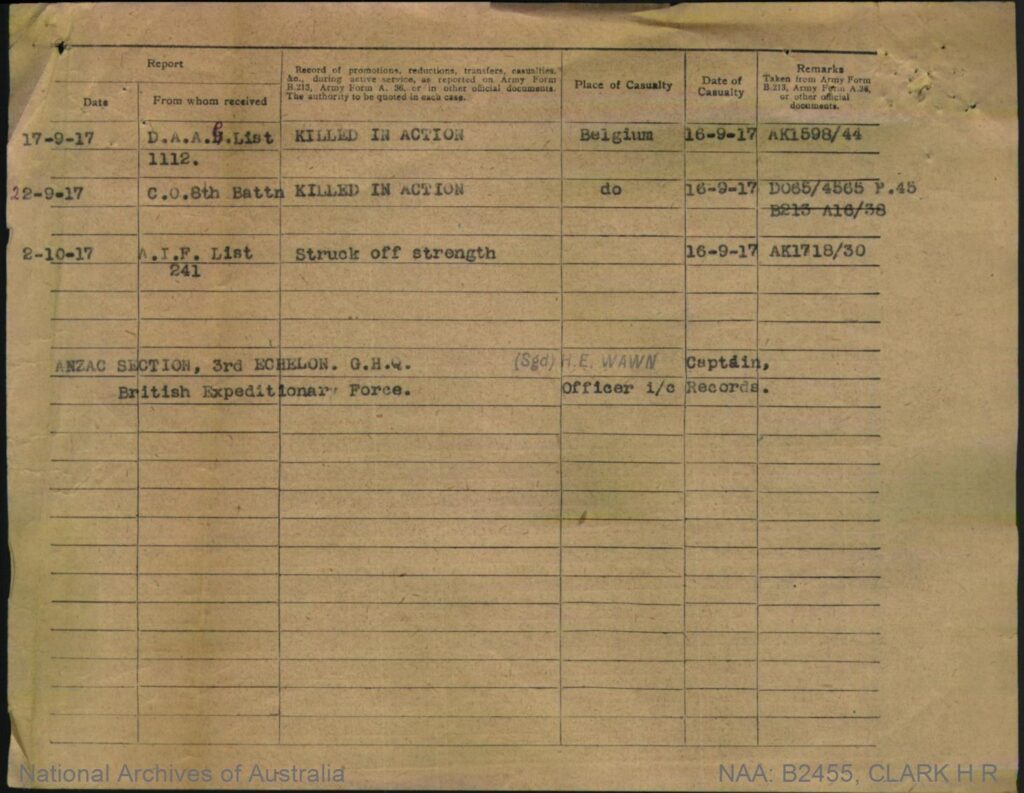 Report
Date
From whom received
Record of promotions, reductions, transfers, casualties,
&c., during active service, as reported on Army Form
B.213, Army Form A. 36, or in other official documents.
The authority to be quoted in each case.
Place of Casualty
Date of
Casualty
Remarks
Taken from Army Form
B.213, Army Form A.36,
or other official
documents.
17-9-17 D.A.A.G.List KILLED IN ACTION Belgium 16-9-17 AK1598/44
1112.
22-9-17 C.O.8th Battn KILLED IN ACTION do 16-9-17 DO65/4565 P.45
B213 A16/38
2-10-17 A.I.F. List Struck off strength 16-9-17 AK1718/30
241
ANZAC SECTION, 3rd ECHELON. G.H.Q. (Sgd) H.E. WAWN Captain,
British Expeditionary Force. Officer i/c Records.
National Archives of Australia NAA: B2455, CLARK H R